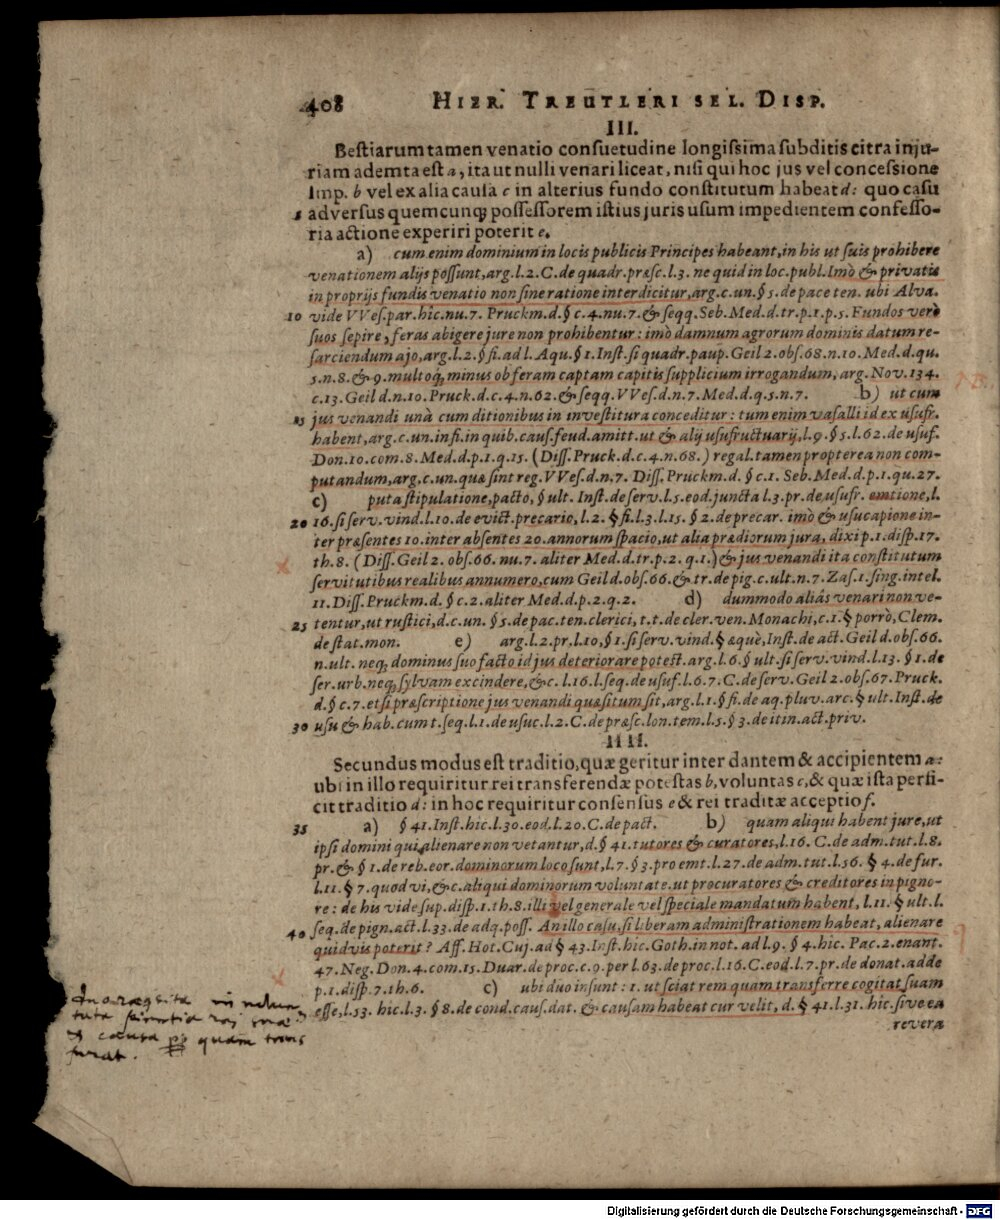 408 HIER. TREUTLERI SEL. DISP.
III.
Beſtiarum tamen venatio conſuetudine longiſsima ſubditis citra inju-
riam ademta eſt a, ita ut nulli venari liceat, niſi qui hoc jus vel conceſſione
Imp. b vel ex alia cauſa c in alterius fundo conſtitutum habeat d: quo caſu
5 adverſus quemcunq; poſſeſſorem iſtius juris uſum impedientem confeſſo-
ria actione experiri poterit e.
a) cum enim dominium in locis publicis Principes habeant, in his ut ſuis prohibere
venationem alijs poſſunt, arg. l. 2. C. de quadr. præſc. l. 3. ne quid in loc. publ. Imò & privatis
in proprijs fundis venatio non ſine ratione interdicitur, arg. c. un. § 5. de pace ten. ubi Alva.
10 vide VVeſ. par. hic. nu. 7. Pruckm. d. § c. 4. nu. 7. & ſeqq. Seb. Med. d. tr. p. 1. p. 5. Fundos verò
ſuos ſepire, feras abigere jure non prohibentur: imò damnum agrorum dominis datum re-
ſarciendum ajo, arg. l. 2. § fi. ad l. Aqu. § 1. Inſt. ſi quadr. paup. Geil 2. obſ. 68. n. 10. Med. d. qu.
5. n. 8. & 9. multoq; minus ob feram captam capitis ſupplicium irrogandum, arg. Nov. 134.
c. 13. Geil d. n. 10. Pruck. d. c. 4. n. 62. & ſeqq. VVeſ. d. n. 7. Med. d. q. 5. n. 7. b) ut cum
15 jus venandi unà cum ditionibus in inveſtitura conceditur: tum enim vaſalli id ex uſufr.
habent, arg. c. un. in fi. in quib. cauſ. feud. amitt. ut & alij uſufructuarij, l. 9. § 5. l. 62. de uſuf.
Don. 10. com. 8. Med. d. p. 1. q. 15. (Diſſ. Pruck. d. c. 4. n. 68.) regal. tamen propterea non com-
putandum, arg. c. un. quæ ſint reg. VVeſ. d. n. 7. Diſſ. Pruckm. d. § c. 1. Seb. Med. d. p. 1. qu. 27.
c) puta ſtipulatione, pacto, § ult. Inſt. de ſerv. l. 5. eod. juncta l. 3. pr. de uſufr. emtione, l.
20 16. ſi ſerv. vind. l. 10. de evict. precario, l. 2. § fi. l. 3. l. 15. § 2. de precar. imò & uſucapione in-
ter præſentes 10. inter abſentes 20. annorum ſpacio, ut alia prædiorum jura, dixi p. 1. diſp. 17.
th. 8. (Diſſ. Geil 2. obſ. 66. nu. 7. aliter Med. d. tr. p. 2. q. 1.) & jus venandi ita conſtitutum
ſervitutibus realibus annumero, cum Geil d. obſ. 66. & tr. de pig. c. ult. n. 7. Zaſ. 1. ſing. intel.
11. Diſſ. Pruckm. d. § c. 2. aliter Med. d. p. 2. q. 2. d) dummodo aliás venari non ve-
25 tentur, ut ruſtici, d. c. un. § 5. de pac. ten. clerici, t. t. de cler. ven. Monachi, c. 1. § porrò, Clem.
de ſtat. mon. e) arg. l. 2. pr. l. 10, § 1. ſi ſerv. vind. § æquè, Inſt. de act. Geil d. obſ. 66.
n. ult. neq; dominus ſuo facto id jus deteriorare poteſt. arg. l. 6. § ult. ſi ſerv. vind. l. 13. § 1. de
ſer. urb. neq; ſylvam excindere, &c. l. 16. l. ſeq. de uſuf. l. 6. 7. C. de ſerv. Geil 2. obſ. 67. Pruck.
d. § c. 7. etſi præſcriptione jus venandi quæſitum ſit, arg. l. 1. § fi. de aq. pluv. arc. § ult. Inſt. de
30 uſu & hab. cum t. ſeq. l. 1. de uſuc. l. 2. C. de præſc. lon. tem. l. 5. § 3. de itin. act. priv.
IIII.
Secundus modus eſt traditio, quæ geritur inter dantem & accipientem a:
ubi in illo requiritur rei transferendæ poteſtas b, voluntas c, & quæ iſta perfi-
cit traditio d: in hoc requiritur conſenſus e & rei traditæ acceptio f.
35 a) § 41. Inſt. hic. l. 30. eod. l. 20. C. de pact. b) quam aliqui habent jure, ut
ipſi domini qui alienare non vetantur, d. § 41. tutores & curatores, l. 16. C. de adm. tut. l. 8.
pr. & § 1. de reb. eor. dominorum loco ſunt, l. 7. § 3. pro emt. l. 27. de adm. tut. l. 56. § 4. de fur.
l. 11. § 7. quod vi, &c. aliqui dominorum voluntate. ut procuratores & creditores in pigno-
re: de his vide ſup. diſp. 1. th. 8. illi vel generale vel ſpeciale mandatum habent, l. 11. § ult. l.
40 ſeq. de pign. act. l. 33. de adq. poſſ. An illo caſu, ſi liberam adminiſtrationem habeat, alienare
quidvis poterit? Aff. Hot. Cuj. ad § 43. Inſt. hic. Goth. in not. ad l. 9. § 4. hic. Pac. 2. enant.
47. Neg. Don. 4. com. 15. Duar. de proc. c. 9. per l. 63. de proc. l. 16. C. eod. l. 7. pr. de donat. adde
p. 1. diſp. 7. th. 6. c) ubi duo inſunt: 1. ut ſciat rem quam transferre cogitat ſuam
eſſe, l. 53. hic. l. 3. § 8. de cond. cauſ. dat. & cauſam habeat cur velit, d. § 41. l. 31. hic. ſive ea
revera
causa quam trans
Digitalisierung gefördert durch die Deutsche Forschungsgemeinschaft - DFG